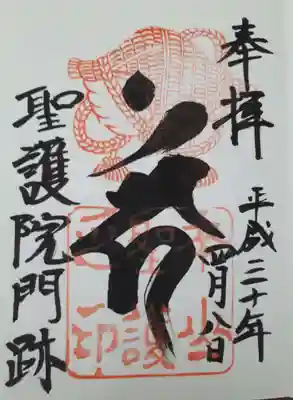 奉拝
平成三十年
四月八日
聖護院門跡